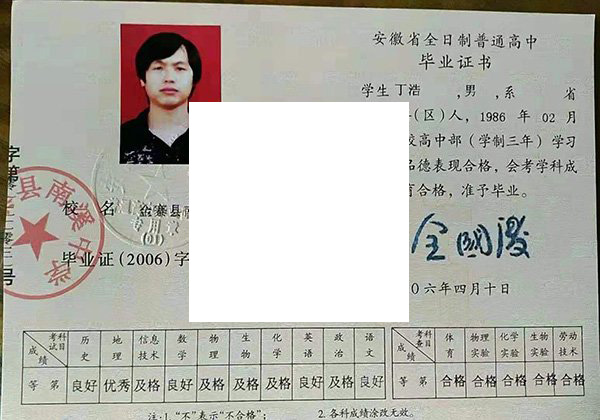 安徽省全日制普通高中
毕业证书
学生丁浩 ,男,系 省
(区)人,1986 年 02 月
校高中部（学制三年）学习
品德表现合格，会考学科成
育合格，准予毕业。
校 名 金寨县
毕业证(2006)字
六年四月十日
考试科目 历史 地理 信息技术 数学 物理 生物 化学 英语 政治 语文
成绩
等第 良好 优秀 及格 良好 及格 及格 及格 良好 良好 良好
考查科目 体育 物理实验 化学实验 生物实验 劳动技术
成绩
等第 合格 合格 合格 合格 合格
注:1."不"表示"不合格"; 2.各科成绩涂改无效。